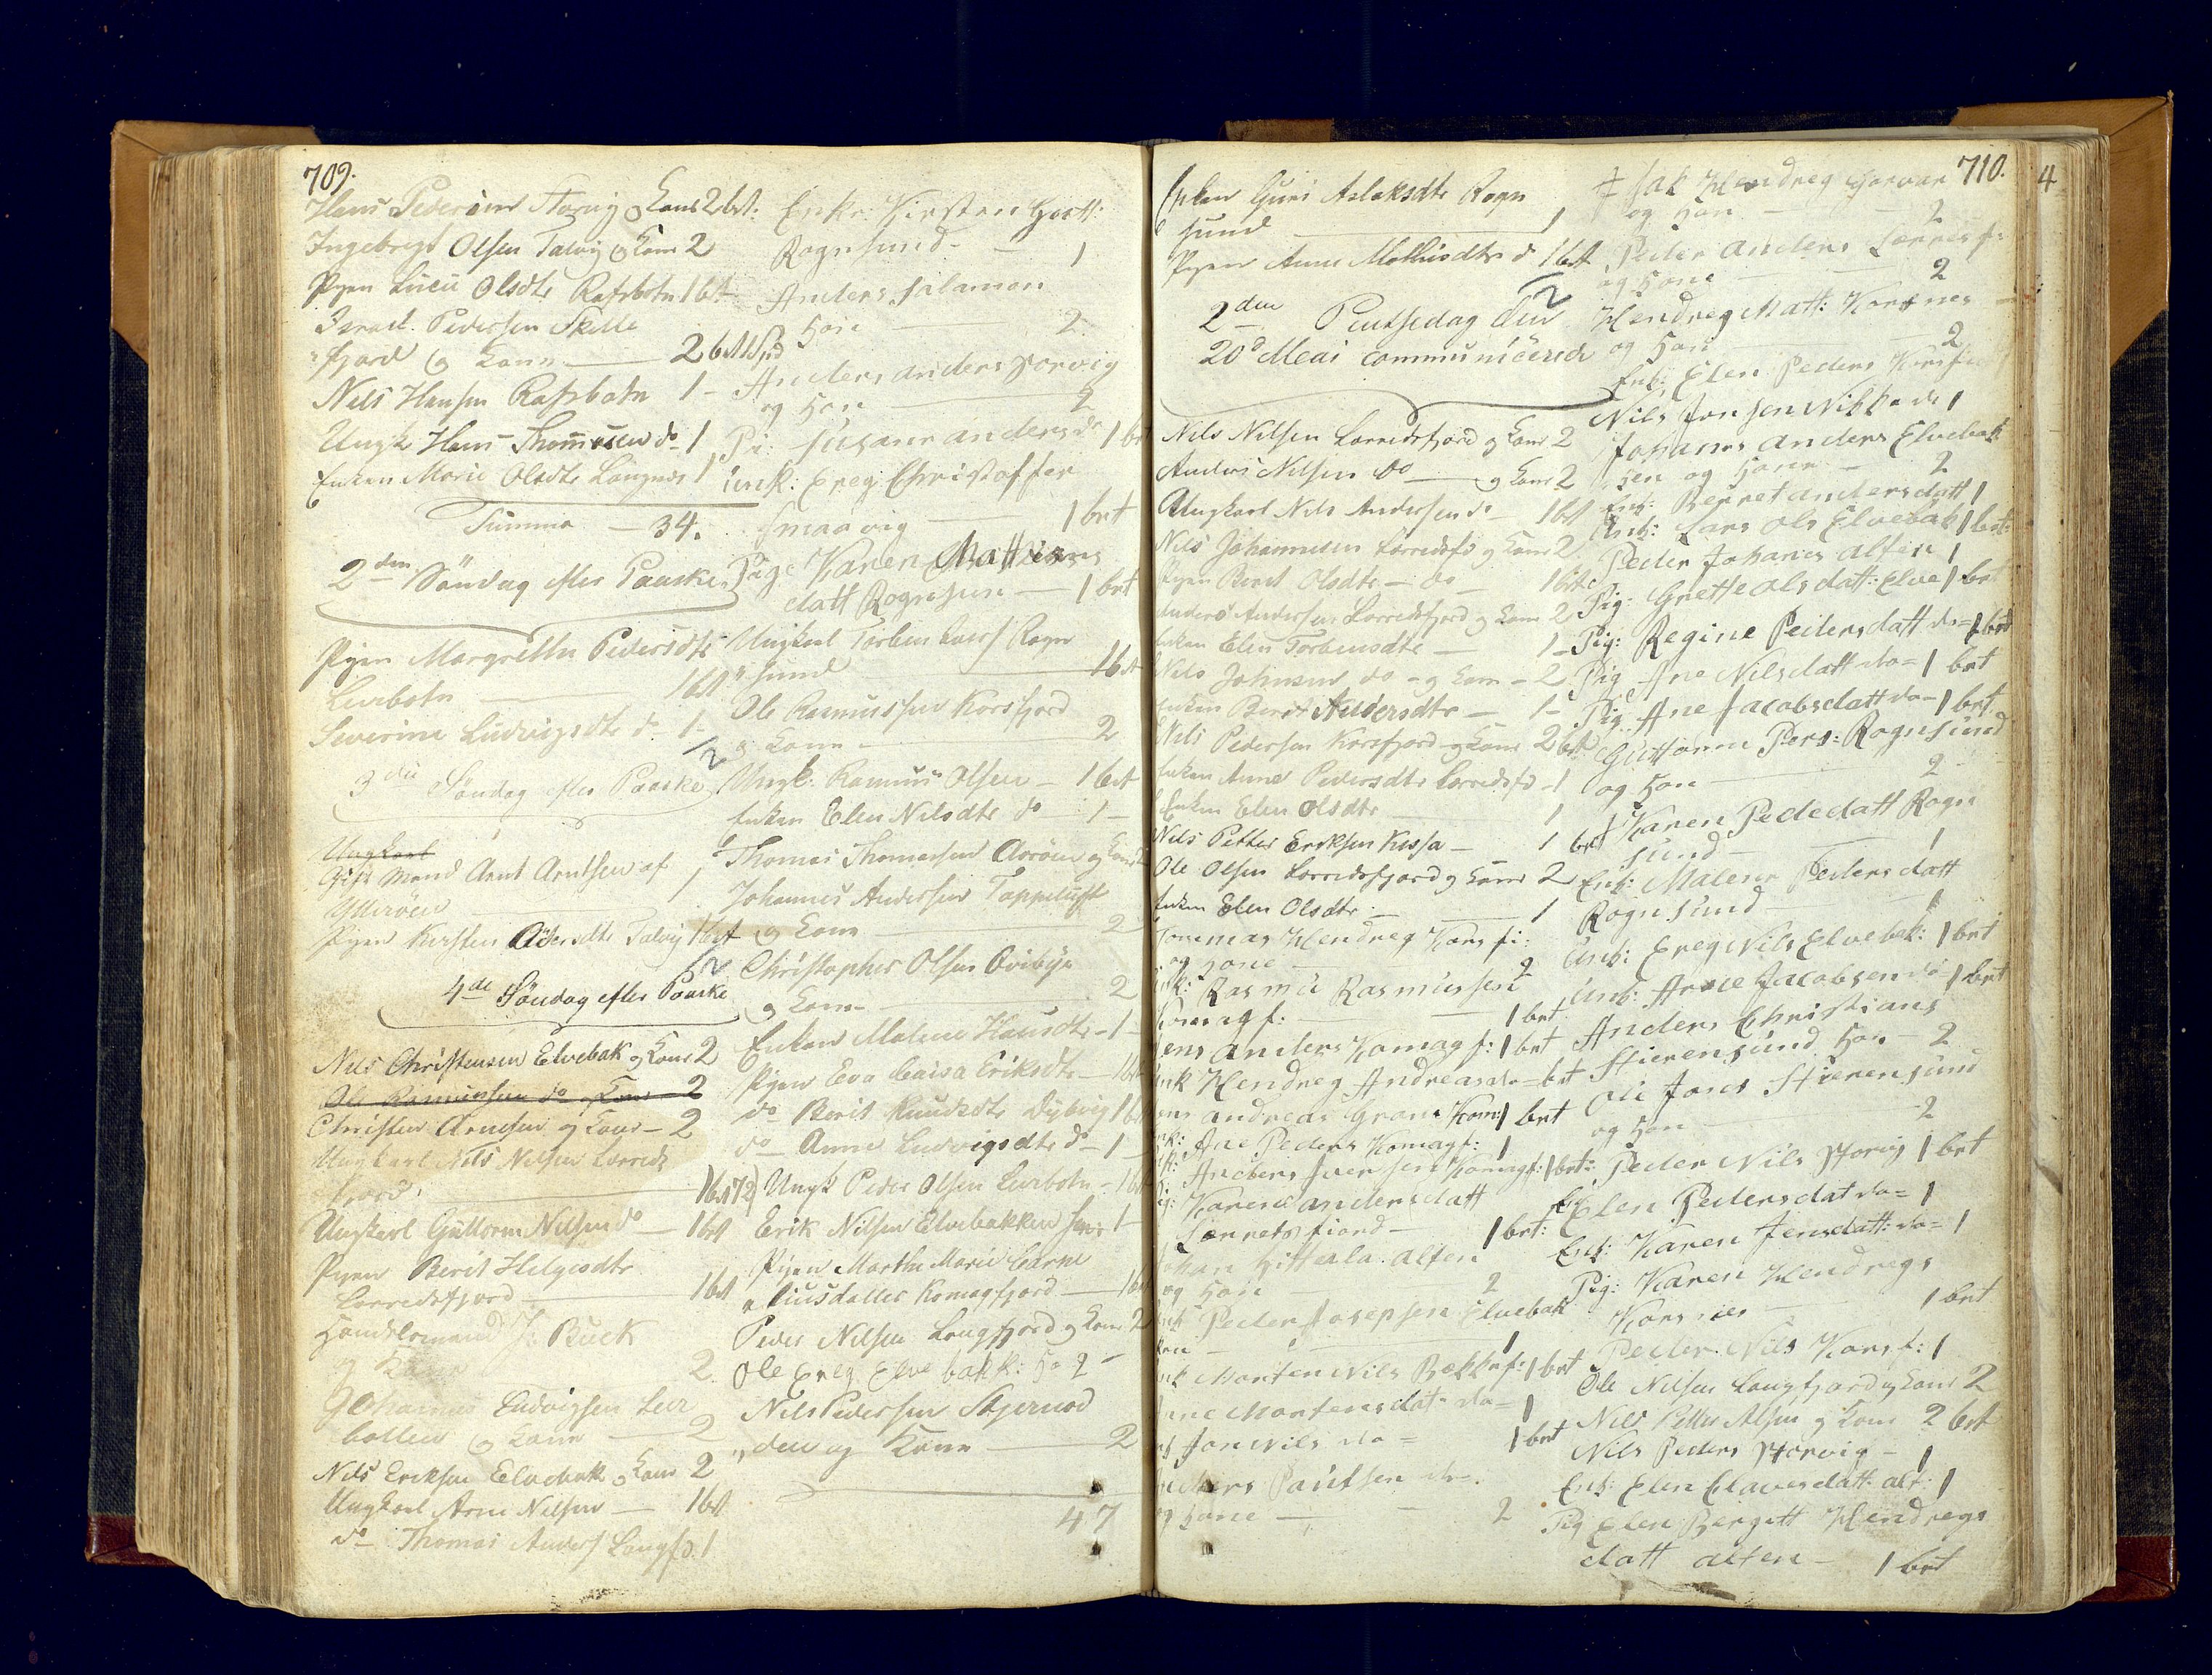 709.
Hans Pedersen Storvig og Kone 2 brt:
Ingebregt Olsen Talvig og Kone 2
Pigen Lucie Olsdtr Rafsbotn 1 brt
Israel Pedersen Skille
fjord og Kone — 2 brt
Nils Hansen Rafsbotn 1 -
Ungk Hans Thomesen do - 1
Enken Marie Olsdtr Langnes 1
Summa — 34.
2den Söndag efter Paaske
Pigen Margrethe Pedersdtr
Leirbotn — 1 brt
Severine Ludvigsdtr do - 1 -
3die Söndag efter Paaske
Ungkarl
Gift Mand Arnt Arntsen af
Ytterøen — 1
Pigen Kirsten Talvig 1 brt
4de Söndag efter Paaske
Nils Christensen Elvebak og Kone 2
Ole Rasmussen do og Kone 2
Christen Arnesen og Kone - 2
Ungkarl Nils Nilsen Lerreds
fjord — 1 brt
Ungkarl Guttorm Nilsen do — 1 brt
Pigen Berit Helgesdtr
Lerredsfjord — 1 brt
Handelsmand Buck
og Kone 2
Johannes Ludvigsen Leir
botten og Kone — 2
Nils Eriksen Elvebak og Kone 2
Ungkarl Arne Nilsen — 1 brt
do Thomas Anders Langfd. 1
Enke: Kirsten Gutt:
Rognsund - — 1
Anders Salamon
Kone — 2
Anders Anders Storvig
og Kone — 2
Pi: Susanne Anders do 1 brt
unk: Ereg Christoffer
Smaavig — 1 brt
Pige Karen Mathians
datt Rognsun — 1 brt
Ungkarl Torben Ivers Rogn
sund — 1 brt
Ole Rasmussen Korsfjord
og Kone — 2
Ungk. Rasmus Olsen — 1 brt
Enken Elen Nilsdtr do 1 -
Thomas Thomassen Aarøen og Kone 2
Johannes Andersen Tappeluft
og Kone — 2
Christopher Olsen Qvibye
og Kone — 2
Enken Malene Hansdtr - 1 -
Pigen Eva Caisa Eriksdtr — 1 brt
do Berit Knudsdtr Dybvig 1 brt
do Anne Ludvigsdtr do - 1 -
Ungk Peder Olsen Leirbotn - 1 brt
Erik Nilsen Elvebakken sen: 1 -
Pigen Marthe Marie
Komagfjord — 1 brt
Peder Nilsen Langfjord og Kone 2
Ole Ereg Elvebakk: Ko 2
Nils Pedersen Stjernod
den og Kone — 2
47
710.
4
Enken Guri Aslaksdtr Rogn
sund — 1
Pigen Anne Mathisdtr do 1 brt
2den Pintsedag den
20d Meai communicerede
Nils Nilsen Lerredsfjord og Kone 2
Anders Nilsen do — og Kone 2
Ungkarl Nils Andersen do - 1 brt
Nils Johannesen Lerredsfd og Kone 2
Pigen Berit Olsdtr — do — 1 brt
Anders Andersen Lerredsfjord og Kone 2
Enken Elen Torbensdtr — 1 -
Nils Johnsen do - og Kone - 2
Enken Berit Andersdtr — 1 -
Nils Pedersen Korsfjord og Kone 2 brt
Enken Anne Pedersdtr Lerredsfd - 1
Enken Elen Olsdtr — 1
Nils Petter Eriksen Kossa — 1 brt
Ole Olsen Lerredsfjord og Kone 2
Enken Elen Olsdtr — 1
Tommas Hendreg Korsfi:
og Kone — 2
unk: Rasmus Rasmussen
Komagf: — 1 brt
Jens Anders Komagf: 1 brt
unk Hendreg Andreas do = brt
Andreas Grane Kom: 1 brt
Ane Peders Komagf: 1
Anders Iversen Komagf: 1 brt:
Pig: Karen Andersdatt
Lerretsfiord - — 1 brt:
Johan Alten
og Kone 2
unk Peder Josepsen Elvebak
ken — 1
unk Morten Nils Bekkef: 1 brt
Ane Mortensdat: do = 1
Jon Nils do = 1 brt
Anders Poulsen do =.
og Kone — 2
Isak Hendreg
og Kon — 2
Peder Anders Lerresf:
og Kone — 2
Hendreg Matt: Korsnes
og Kon — 2
Enk: Elen Peders Korsf
Nils Jonsen do 1
Johannes Anders Elvebak
ken og Kone — 2
Enk: Berret Andersdatt 1
Unk: Lars Ols Elvebak 1 brt:
Peder Johanes Alten 1
Pig: Grette Olsdatt: Elve 1 brt
Pig: Regine Pedersdatt do = 1 brt
Pig Ane Nilsdatt do = 1 brt
Pig Ane Jacobsdatt do = 1 brt
Guttorm Pers: Rognsund
og Kon — 2
Karen Pededatt Rogn
sund — 1
Enk: Malene Pedersdatt
Rognsund — 1
Unk: Ereg Nils Elvebak: 1 brt
Unk: Arne Jacobsen do 1 brt
Anders Christians
Stierensund Kon - 2
Ole Jons Stierensund
og Kon — 2
Peder Nils Storvig 1 brt
Elen Pedersdat do = 1
Enk: Karen Jensdatt: do = 1
Pig: Karen Hendregs
Korsnes — 1 brt
Peder Nils Korsf: 1
Ole Nilsen Langfjord og Kone 2
Nils Petter Alten og Kone 2 brt
Nils Peders Storvig — 1
Enk: Elen Clavesdatt: alt: 1
Pig Elen Bergitt Hendregs
datt alten — 1 brt